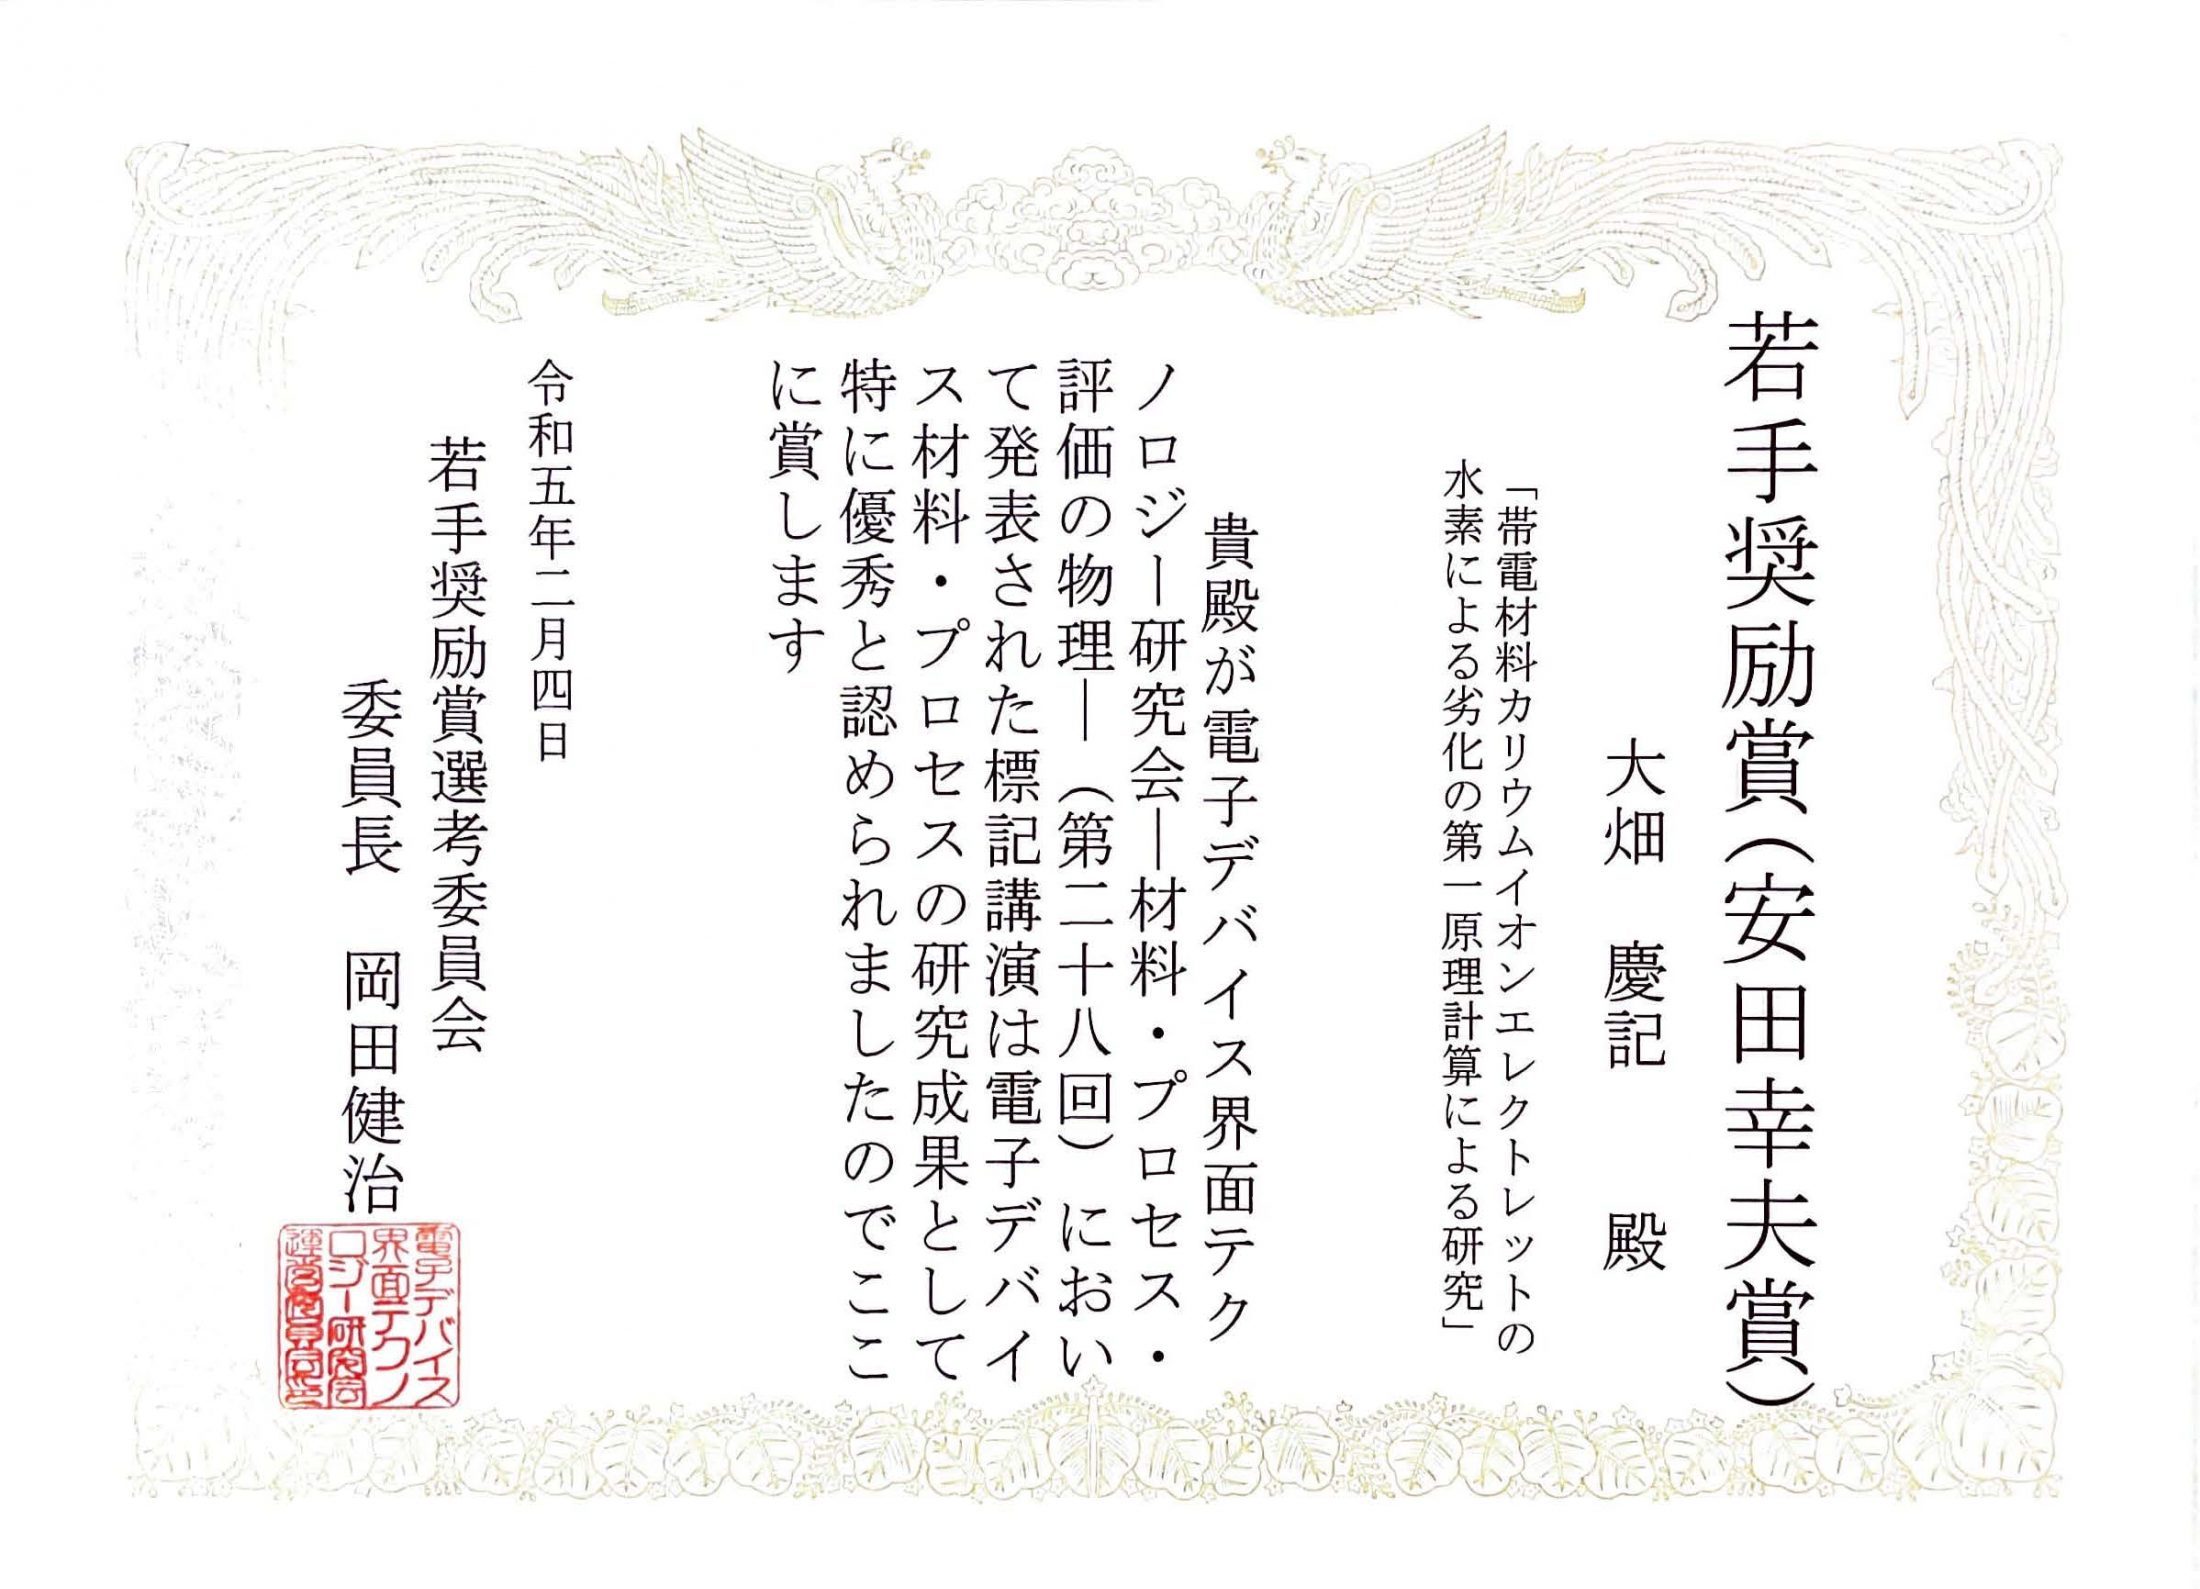 若手奨励賞(安田幸夫賞)
大畑 慶記 殿
「帯電材料カリウムイオンエレクトレットの
水素による劣化の第一原理計算による研究」
貴殿が電子デバイス界面テク
ノロジー研究会―材料・プロセス・
評価の物理―(第二十八回)におい
て発表された標記講演は電子デバイ
ス材料・プロセスの研究成果として
特に優秀と認められましたのでここ
に賞します
令和五年二月四日
若手奨励賞選考委員会
委員長 岡田健治
電子デバイス
界面テクノ
ロジー研究会
運営委員会印